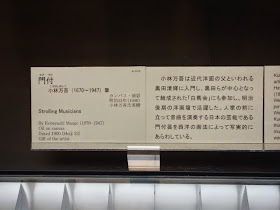 かど づけ
門付
小林万吾(1870〜1947)筆
カンバス・油彩
明治33年(1900)
小林万吾氏寄贈
Strolling Musicians
By Kobayashi Mango (1870–1947)
Oil on canvas
Dated 1900 (Meiji 33)
Gift of the artist
小林万吾は近代洋画の父といわれる
黒田清輝に入門し、黒田らが中心となっ
て結成された「白馬会」にも参加し、明治
後期の洋画壇で活躍した。人家の前に
立って音曲を演奏する日本の芸能である
門付芸を西洋の画法によって写実的に
あらわしている。